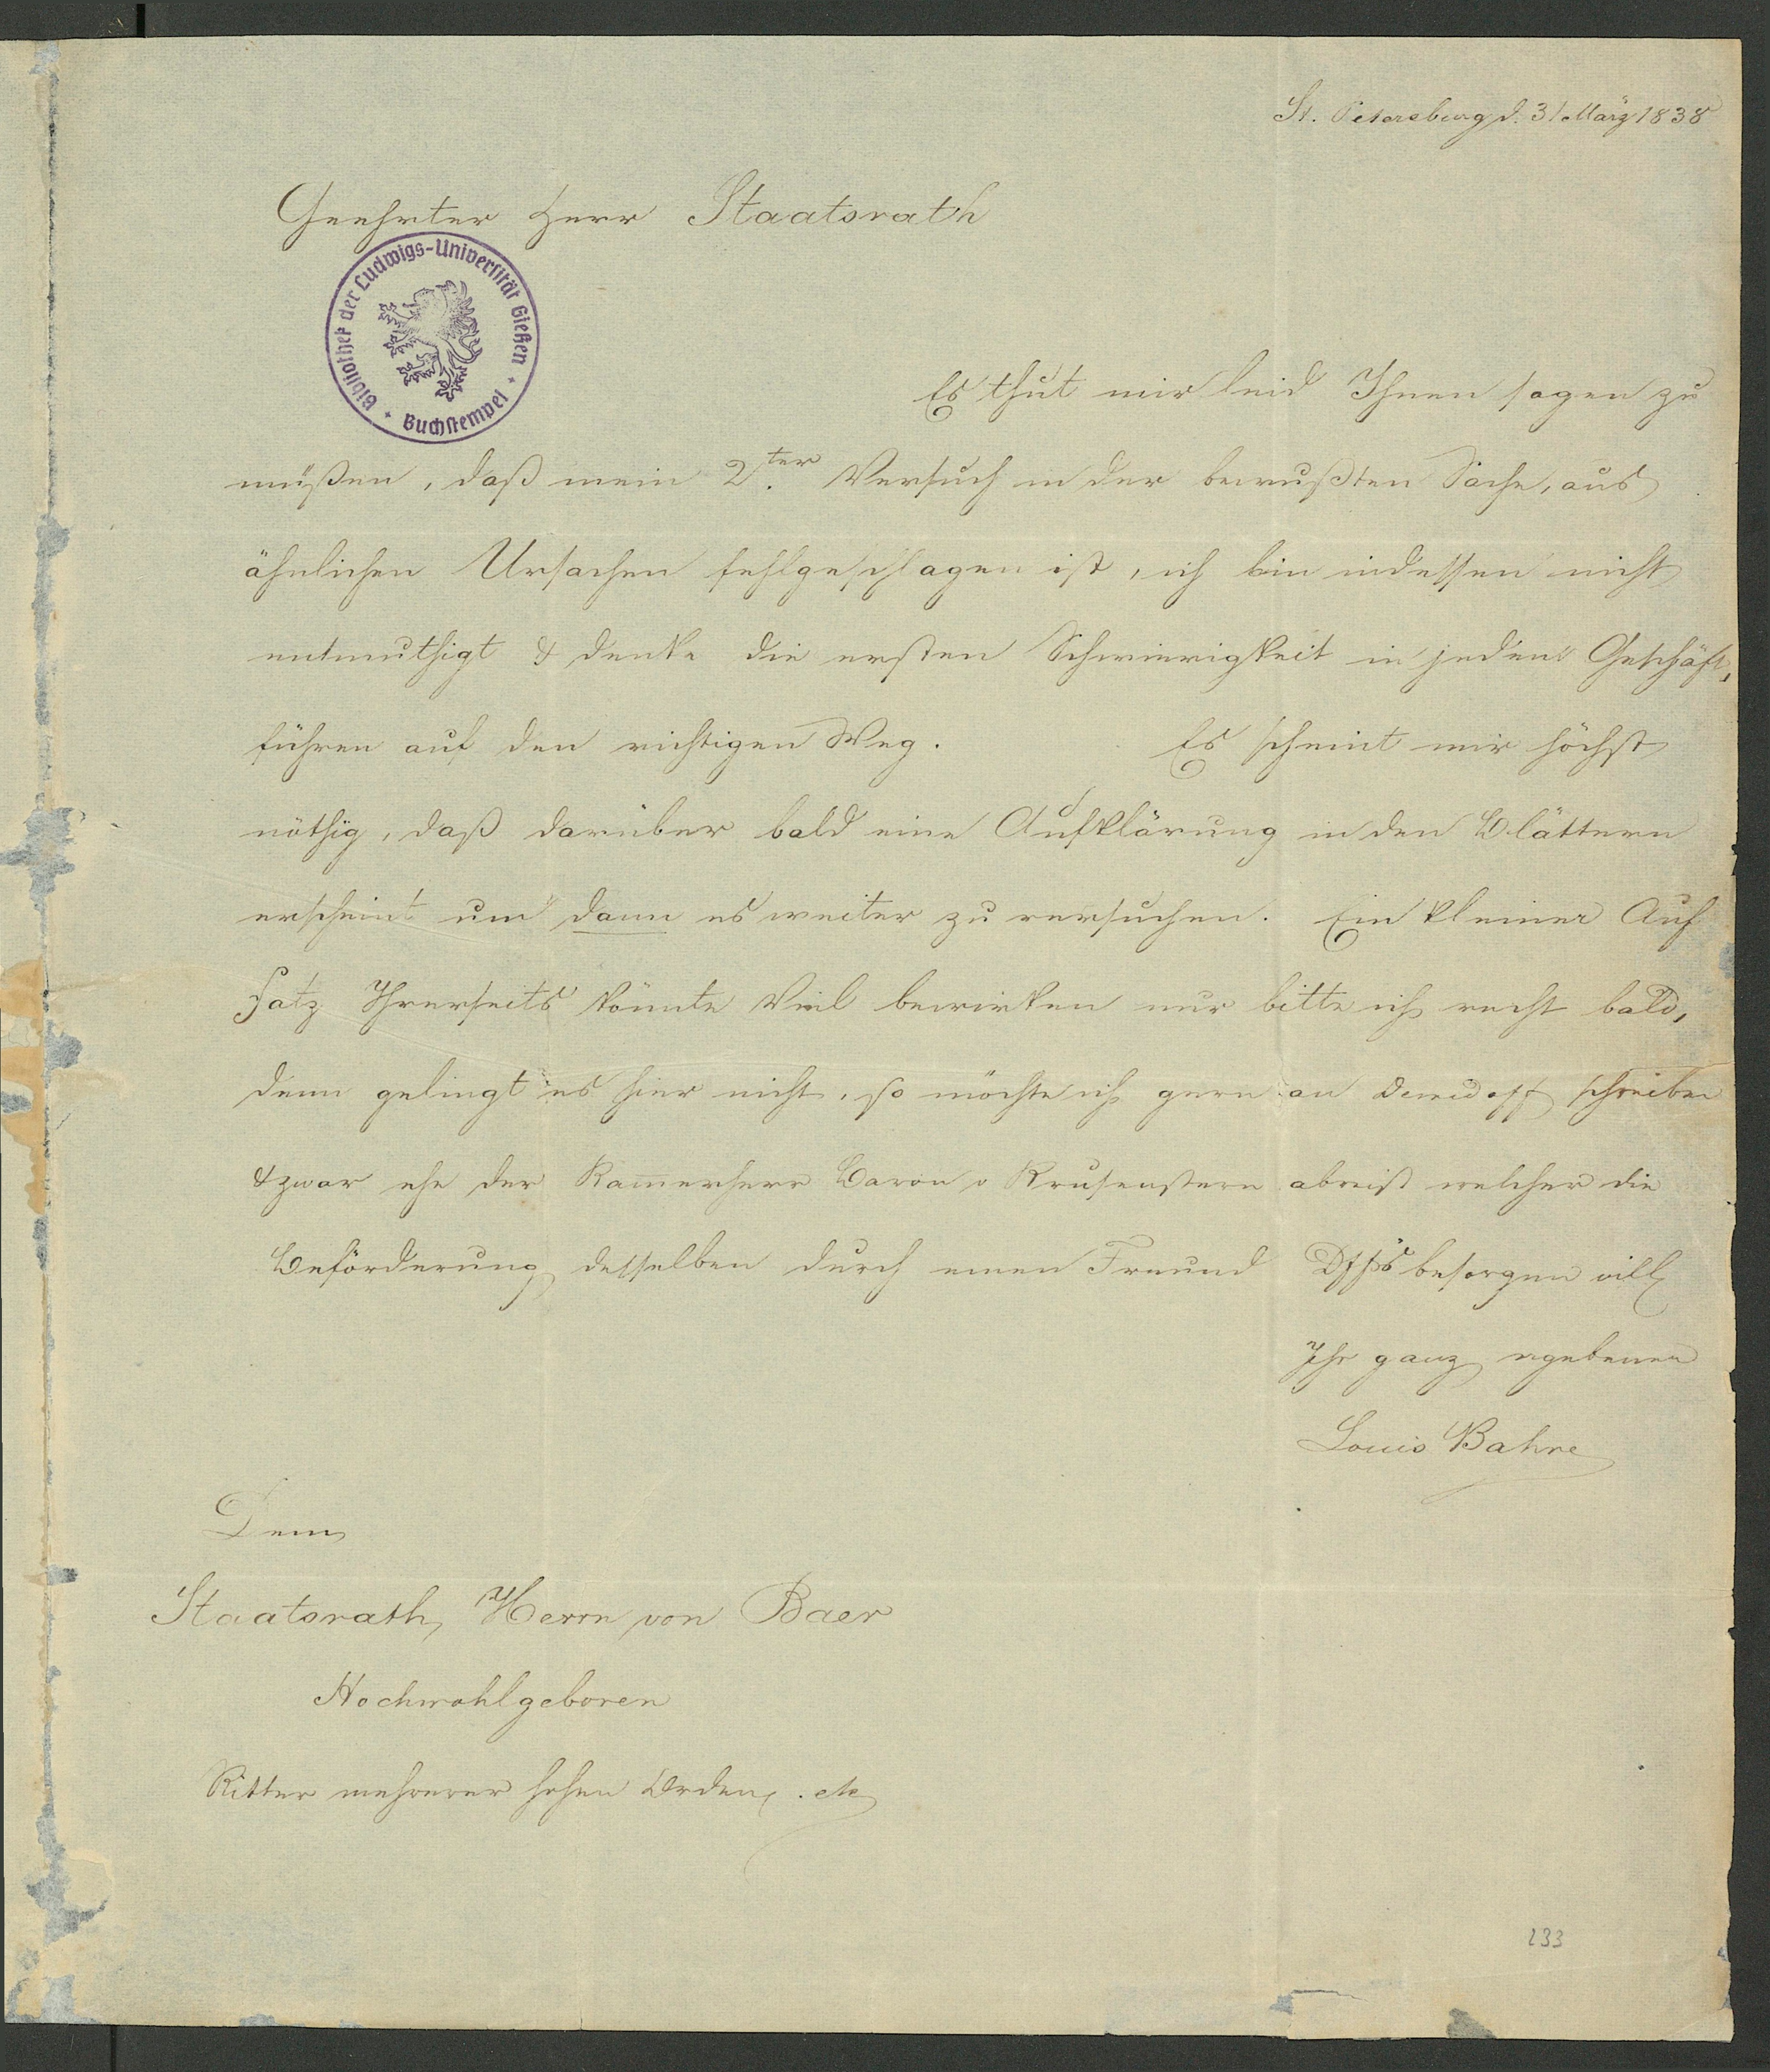 St. Petersburg d. 31 März 1838
Geehrter Herr Staatsrath
Bibliothek der Ludwigs-Universität Gießen
Buchstempel
Es thut mir leid Ihnen sagen zu
müßen, daß mein 2.ter Versuch in der bewußten Sache, aus
ähnlichen Ursachen fehlgeschlagen ist, ich bin indessen nicht
entmuthigt & denke die ersten Schwierigkeit in jedem Geschäft,
führen auf den richtigen Weg. Es scheint mir höchst
nöthig, daß darüber bald eine Aufklärung in den Blättern
erscheint um dann es weiter zu versuchen. Ein kleiner Auf
satz Ihrerseits könnte Viel bewirken nur bitte ich recht bald,
denn gelingt es hier nicht, so möchte ich gern an Demidoff schreiben
& zwar ehe der Kam̄erherr Baron v Krusenstern abreist welcher die
Beförderung desselben durch einen Freund besorgen will
Ihr ganz ergebener
Louis Bahre
Dem
Staatsrath, Herrn von Baer
Hochwohlgeboren
Ritter mehrerer hohen Orden. etc
133